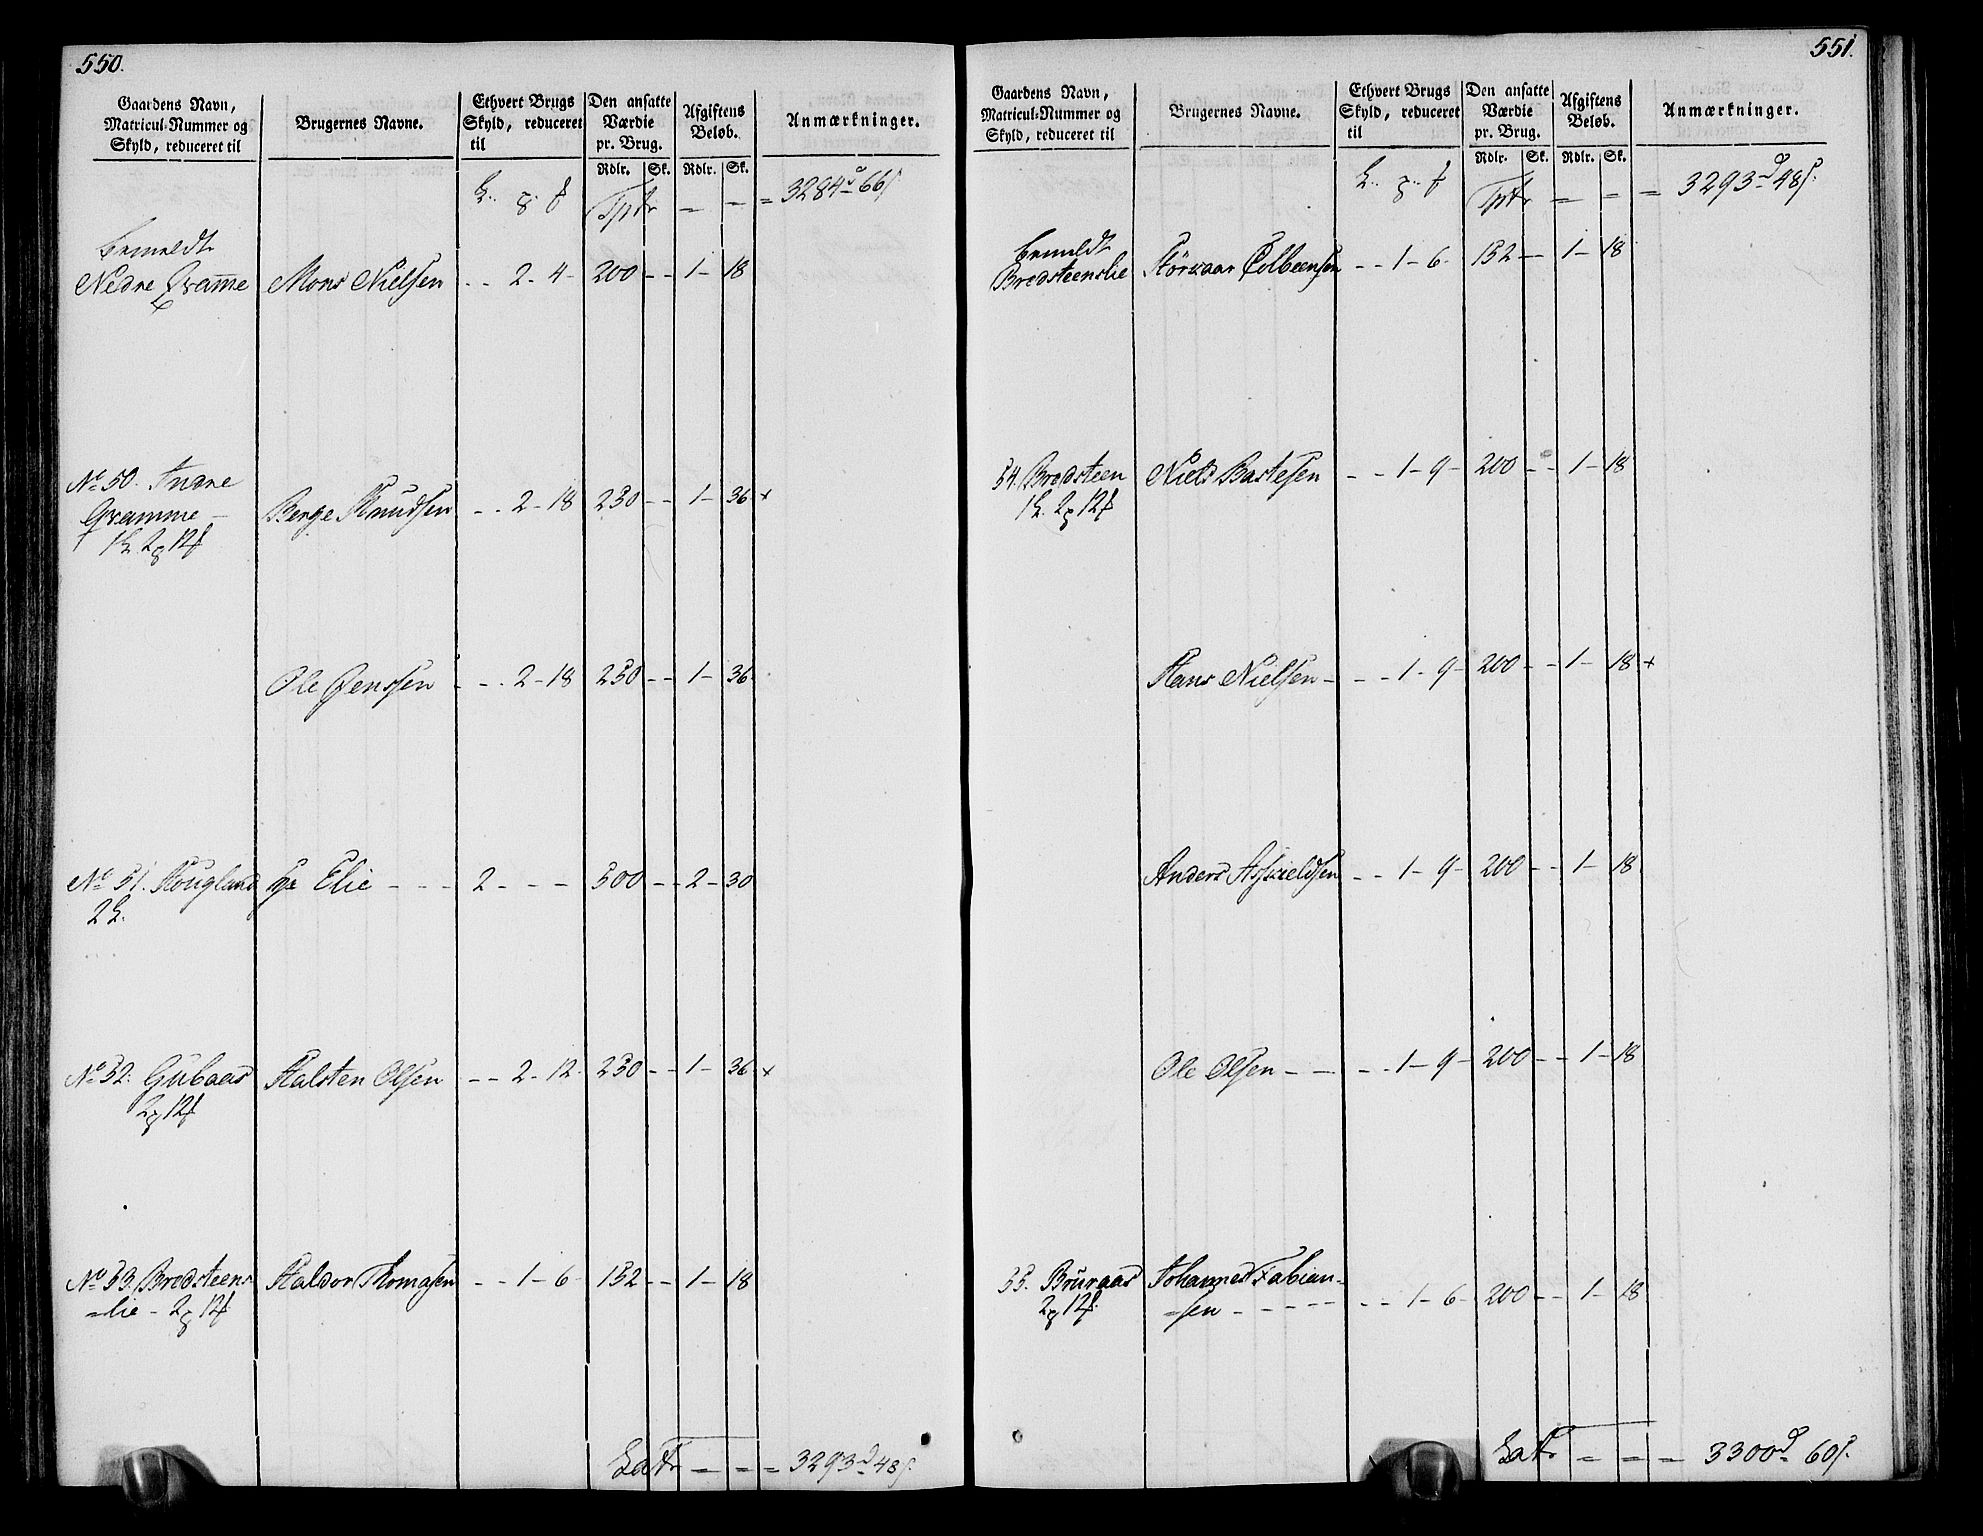 550.
Gaardens Navn, Matricul-Nummer og Skyld, reduceret til
Brugernes Navne.
Ethvert Brugs Skyld, reduceret til
Den ansatte Værdie pr. Brug.
Afgiftens Beløb.
Anmærkninger.
Rdlr. Sk. Rdlr. Sk.
Tptr — — = 3284 d 66 s.
bemeldt
Nedre Qvamme Mons Nielsen - - 2 - 4 - 200 - - 1 - 18
No 50. Indre
Qvamme — Berge Knudsen - - 2 - 18 250 - - 1 - 36 +
1 2 12
Ole Jenssen - - - 2 - 18 250 - - 1 - 36
No 51. Hougland Hr Elie - - - 2 - - - 500 - - 2 - 30
2
No 52. Gubaas Halsten Olsen - - 2 - 12 250 - - 1 - 36 +
2 12
No 53. Bredsteens Haldor Thomasen - - 1 - 6 - 152 - - 1 - 18
=lie - 2 12
Latr — = = 3293 d 48 s.
551.
Gaardens Navn, Matricul-Nummer og Skyld, reduceret til
Brugernes Navne.
Ethvert Brugs Skyld, reduceret til
Den ansatte Værdie pr. Brug.
Afgiftens Beløb.
Anmærkninger.
Rdlr. Sk. Rdlr. Sk.
Tptr = = = 3293 d 48 s.
bemeldt
Bredsteenslie Colbeensen - - 1 - 6 - 152 - - 1 - 18
54. Bredsteen Niels Bastesen - - 1 - 9 - 200 - - 1 - 18
1 2 12
Hans Nielsen - - - 1 - 9 - 200 - - 1 - 18 +
Anders Asskieldsen - - 1 - 9 - 200 - - 1 - 18
Ole Olsen - - - - 1 - 9 - 200 - - 1 - 18
55. Bruraas Johannes Fabian-
2 12 =sen - - - - - - 1 - 6 - 200 - - 1 - 18
Latr = = = 3300 d 60 s.